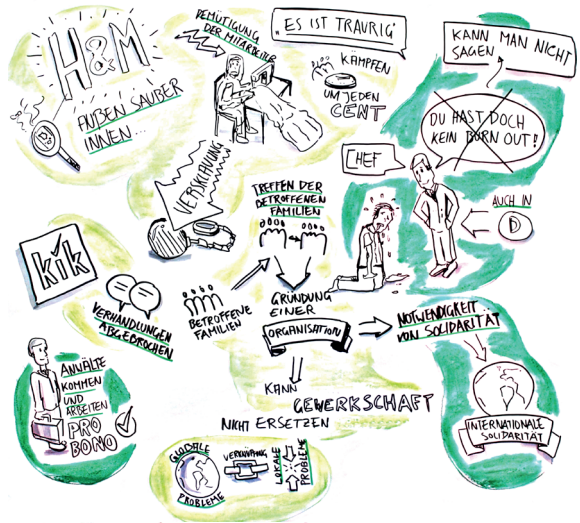 H&M
AUẞEN SAUBER
INNEN...
DEMÜTIGUNG
DER MITARBEITER
„ES IST TRAURIG"
KÄMPFEN
UM JEDEN
CENT
KANN MAN NICHT
SAGEN
DU HAST DOCH
KEIN BURN OUT!
CHEF
AUCH IN
D
VERSKLAVUNG
TREFFEN DER
BETROFFENEN
FAMILIEN
kik
VERHANDLUNGEN
ABGEBROCHEN
BETROFFENE
FAMILIEN
GRÜNDUNG
EINER
ORGANISATION
NOTWENDIGKEIT
VON SOLIDARITÄT
INTERNATIONALE
SOLIDARITÄT
ANWÄLTE
KOMMEN
UND
ARBEITEN
PRO
BONO
KANN
GEWERKSCHAFT
NICHT ERSETZEN
GLOBALE
PROBLEME
VERKNÜPFUNG
LOKALE
PROBLEME